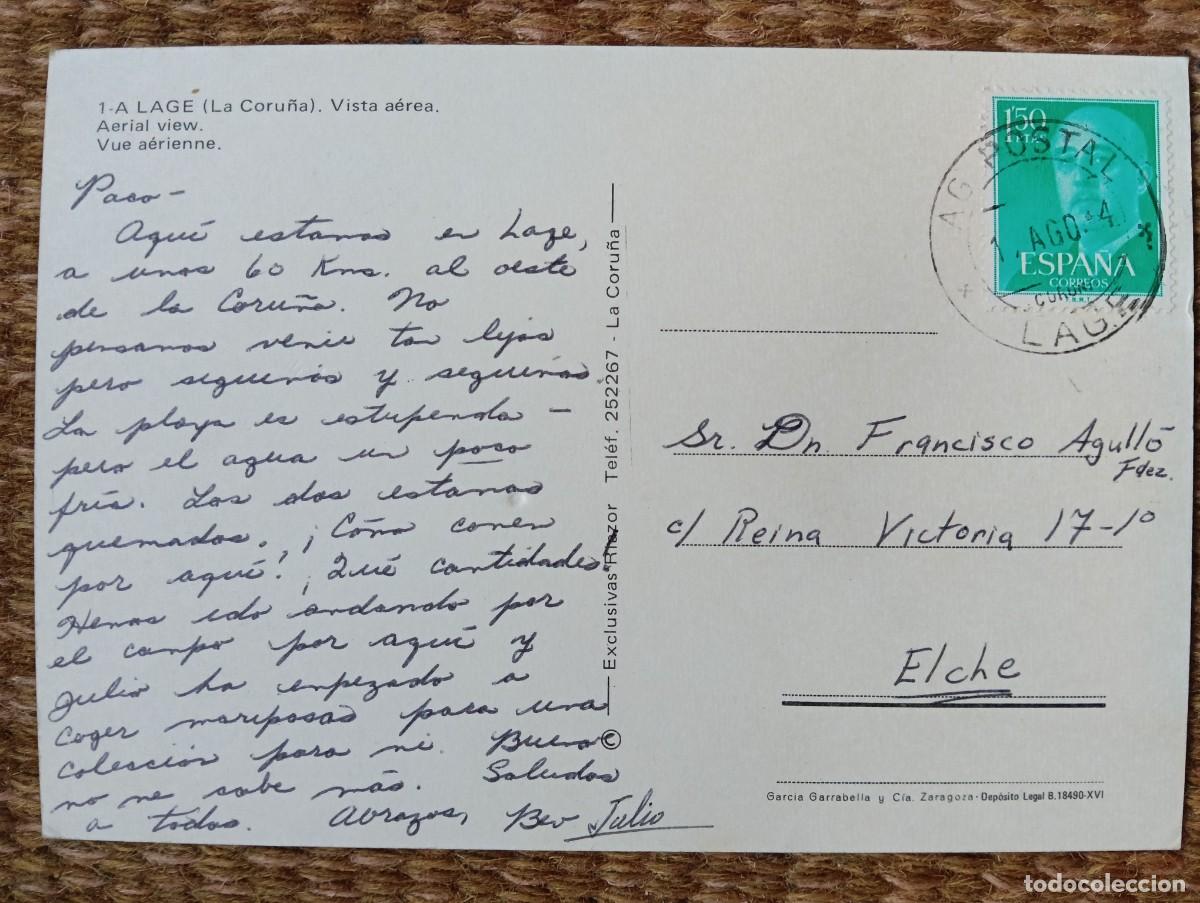 1-A LAGE (La Coruña). Vista aérea.
Aerial view.
Vue aérienne.
Paco-
Aquí estamos en Lage,
a unos 60 Kms. al oeste
de la Coruña. No
pensamos venir tan lejos
pero seguimos y seguimos.
La playa es estupenda -
pero el agua un poco
fría. Los dos estamos
quemados. ¡Cómo comen
por aquí! ¡Qué cantidades!
Hemos ido andando por
el campo por aquí y
Julio ha empezado a
coger mariposas para una
colección para mi. Bueno
no me cabe más. Saludos
a todos. Abrazos, Bev Julio
Exclusivas Riazor Teléf. 252267 - La Coruña
©
1'50
PTA
ESPAÑA
CORREOS
AG. POSTAL
1 AGO. 4
LAGE
Sr. Dn. Francisco Agulló
Fdez.
c/ Reina Victoria 17-1º
Elche
Garcia Garrabella y Cía. Zaragoza - Depósito Legal B.18490-XVI
todocoleccion